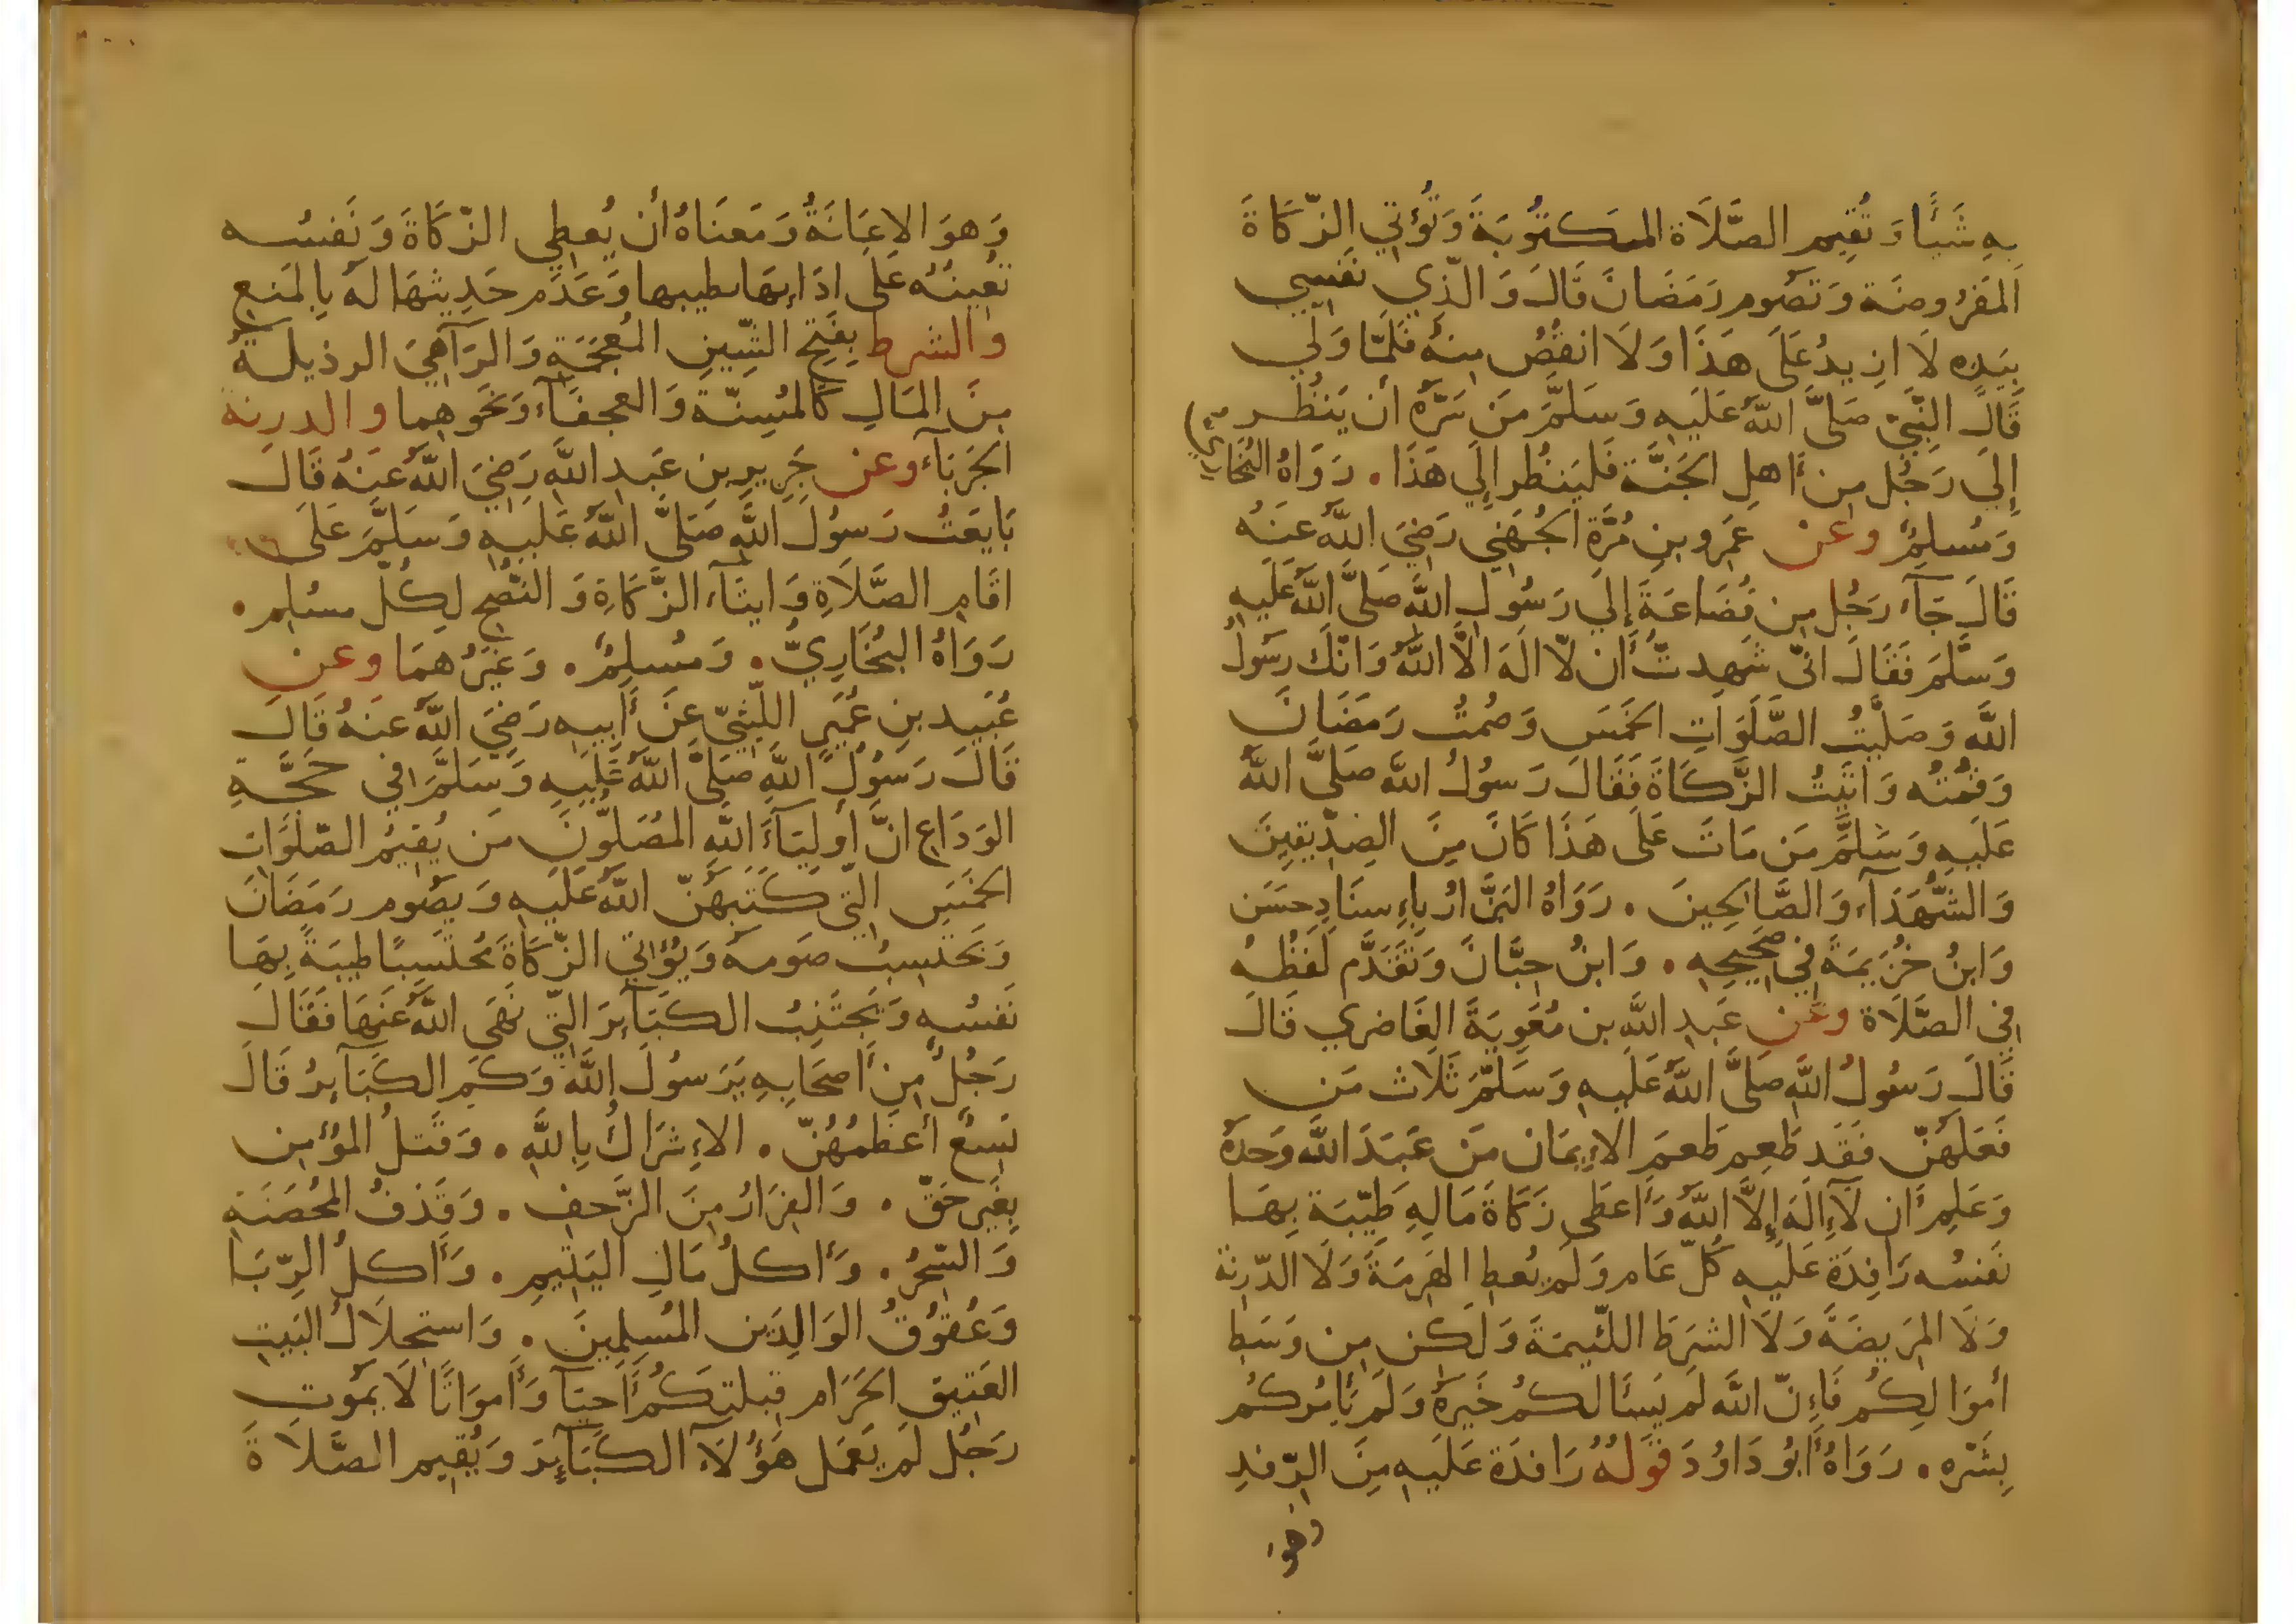 بِهِ شَيْئًا وَتُقِيم الصَّلَاة المَكتُوبَةَ وَتُؤتِي الزّكَاةَ
المَفرُوضَة وَتَصُوم رَمَضَانَ قَالَ وَالَّذِي نَفسِي
بِيَدِهِ لَا ازِيدُ عَلَى هَذَا وَلَا انقُصُ مِنهُ فَلَمَّا وَلَّي
قَالَ النَّبِيّ صَلَّى اللَّهُ عَلَيهِ وَسَلَّمَ مَن سَرَّهُ أَن يَنظُر
إِلَي رَجُل مِن أَهلِ الجَنَّة فَليَنظُر إِلَي هَذَا . رَوَاهُ البُخَاري
وَمُسلِمٌ وعن عَمرو بنِ مُرَّةَ الجُهَنِي رَضِيَ اللَّهُ عَنهُ
قَالَ جَآءَ رَجُل مِن قُضَاعَةَ إِلَي رَسُولِ اللَّهِ صَلَّى اللَّهُ عَلَيهِ
وَسَلَّمَ فَقَالَ انّي شَهِدتُّ أَن لّا الَهَ الَّا اللَّهُ وَانَّكَ رَسُولُ
اللَّهِ وَصَلَّيتُ الصَّلَوَاتِ الخَمسَ وَصُمتُ رَمَضَانَ
وَقُمتُه وَاتَيتُ الزَّكَاةَ فَقَالَ رَسُولُ اللَّهِ صَلَّى اللَّهُ
عَلَيهِ وَسَلَّمَ مَن مَاتَ عَلَى هَذَا كَانَ مِنَ الصِدّيقِينَ
وَالشُّهَدَآءِ وَالصَّالِحِينَ . رَوَاهُ البَزَّارُ بِإِسنَادٍ حَسَن
وَابنُ خُزَيمَةَ فِي صَحِيحِهِ . وَابنُ حِبَّانَ وَتَقَدَّم لَفظُهُ
فِي الصَّلَاة وعن عَبدِ اللَّهِ بن مُعَوِيَةَ الغَاضرِي قَالَ
قَالَ رَسُولُ اللَّهِ صَلَّى اللَّهُ عَلَيهِ وَسَلَّمَ ثَلَاث مَن
فَعَلَهُنّ فَقَد طَعِم طَعمَ الإِيمَان مَن عَبَدَ اللَّهَ وَحدَهُ
وَعَلِمَ أَن لَآ إِلَهَ إِلَّا اللَّهُ وَأَعطَى زَكَاةَ مَالِهِ طَيّبَة بِهَا
نَفسُه رَافِدَة عَلَيهِ كُلّ عَام وَلَم يُعطِ الهَرِمَةَ وَلَا الدّرِنَة
وَلَا المَرِيضَةَ وَلَا الشَرَطَ اللّئِيمَةَ وَلَكِن مِن وَسَطِ
أَموَالِكُم فَإِنّ اللَّهَ لَم يَسأَلكُم خَيرَهُ وَلَم يَأمُركُم
بِشَرّهِ . رَوَاهُ أَبُو دَاوُدَ قَولُهُ رَافِدَة عَلَيهِ مِنَ الرّفدِ
وهو
وَهوَ الاعَانَةُ وَمَعنَاهُ أَن يُعطِي الزّكَاةَ وَنَفسُه
تُعِينُهُ عَلَى ادَائِهَا بطيبها وَعَدَم حَدِيثهَا لَهُ بِالمَنعِ
والشرط بِفَتحِ الشّينِ المُعجَمَةِ وَالرَآءهِيَ الرذيلَةُ
مِنَ المَالِ كَالمُسِنّة وَالعجفَآءِ وَنَحوِهِما والدرنة
الجَربَآءُ وعن جَرِيرِ بنِ عَبدِ اللَّهِ رَضِيَ اللَّهُ عَنهُ قَالَ
بَايَعتُ رَسُولَ اللَّهِ صَلَّى اللَّهُ عَلَيهِ وَسَلَّمَ عَلَى
اقَامِ الصَّلَاةِ وَايتَآءِ الزَّكَاةِ وَالنّصحِ لِكُلّ مسُلِم .
رَوَاهُ البُخَارِيُّ . وَمُسلِمٌ . وَغَيرُهمَا وعن
عُبَيد بنِ عُمَيرٍ اللّيثيّ عَن أَبِيهِ رَضِيَ اللَّهُ عَنهُ قَالَ
قَالَ رَسُولُ اللَّهِ صَلَّى اللَّهُ عَلَيهِ وَسَلَّمَ فِي حَجَّةِ
الوَدَاعِ انَّ أَولِيَآءَ اللَّهِ المُصَلّونَ مَن يُقِيمُ الصّلَوَاتِ
الخَمسَ الّتي كَتَبَهُنّ اللَّهُ عَلَيهِ وَيَصُوم رَمَضَانَ
وَيَحتَسِبُ صَومَهُ وَيُؤتي الزّكَاةَ مُحتَسِبًا طيبَة بِهَا
نَفسُهِ وَيَجتَنِبُ الكَبَآئِرَ الَّتي نَهَى اللَّهُ عَنهَا فَقَالَ
رَجُلٌ مِن أَصحَابِهِ يَرَسُولَ اللَّهِ وَكَم الكَبَآئِرُ قَالَ
تِسعٌ أَعظَمُهُنّ . الإِشرَاكُ بِاللَّهِ . وَقَتلُ المُؤمِن
بِغَيرِ حَقّ . وَالفِرَارُ مِنَ الزَّحفِ . وَقَذفُ المُحصَنَةِ
وَالسّحرُ . وَأَكلُ مَالِ اليَتِيمِ . وَأَكلُ الرّبَا
وَعُقُوقُ الوَالِدَين المُسلِمِينَ . وَاستِحلَالُ البَيتِ
العَتِيقِ الحَرَام قبلَتِكُم أَحيَآ وَأَموَاتًا لَا يمَوتُ
رَجُل لَم يَعمَل هَؤُلَآءِ الكَبَآئِرَ وَيُقِيم الصَّلَاةَ